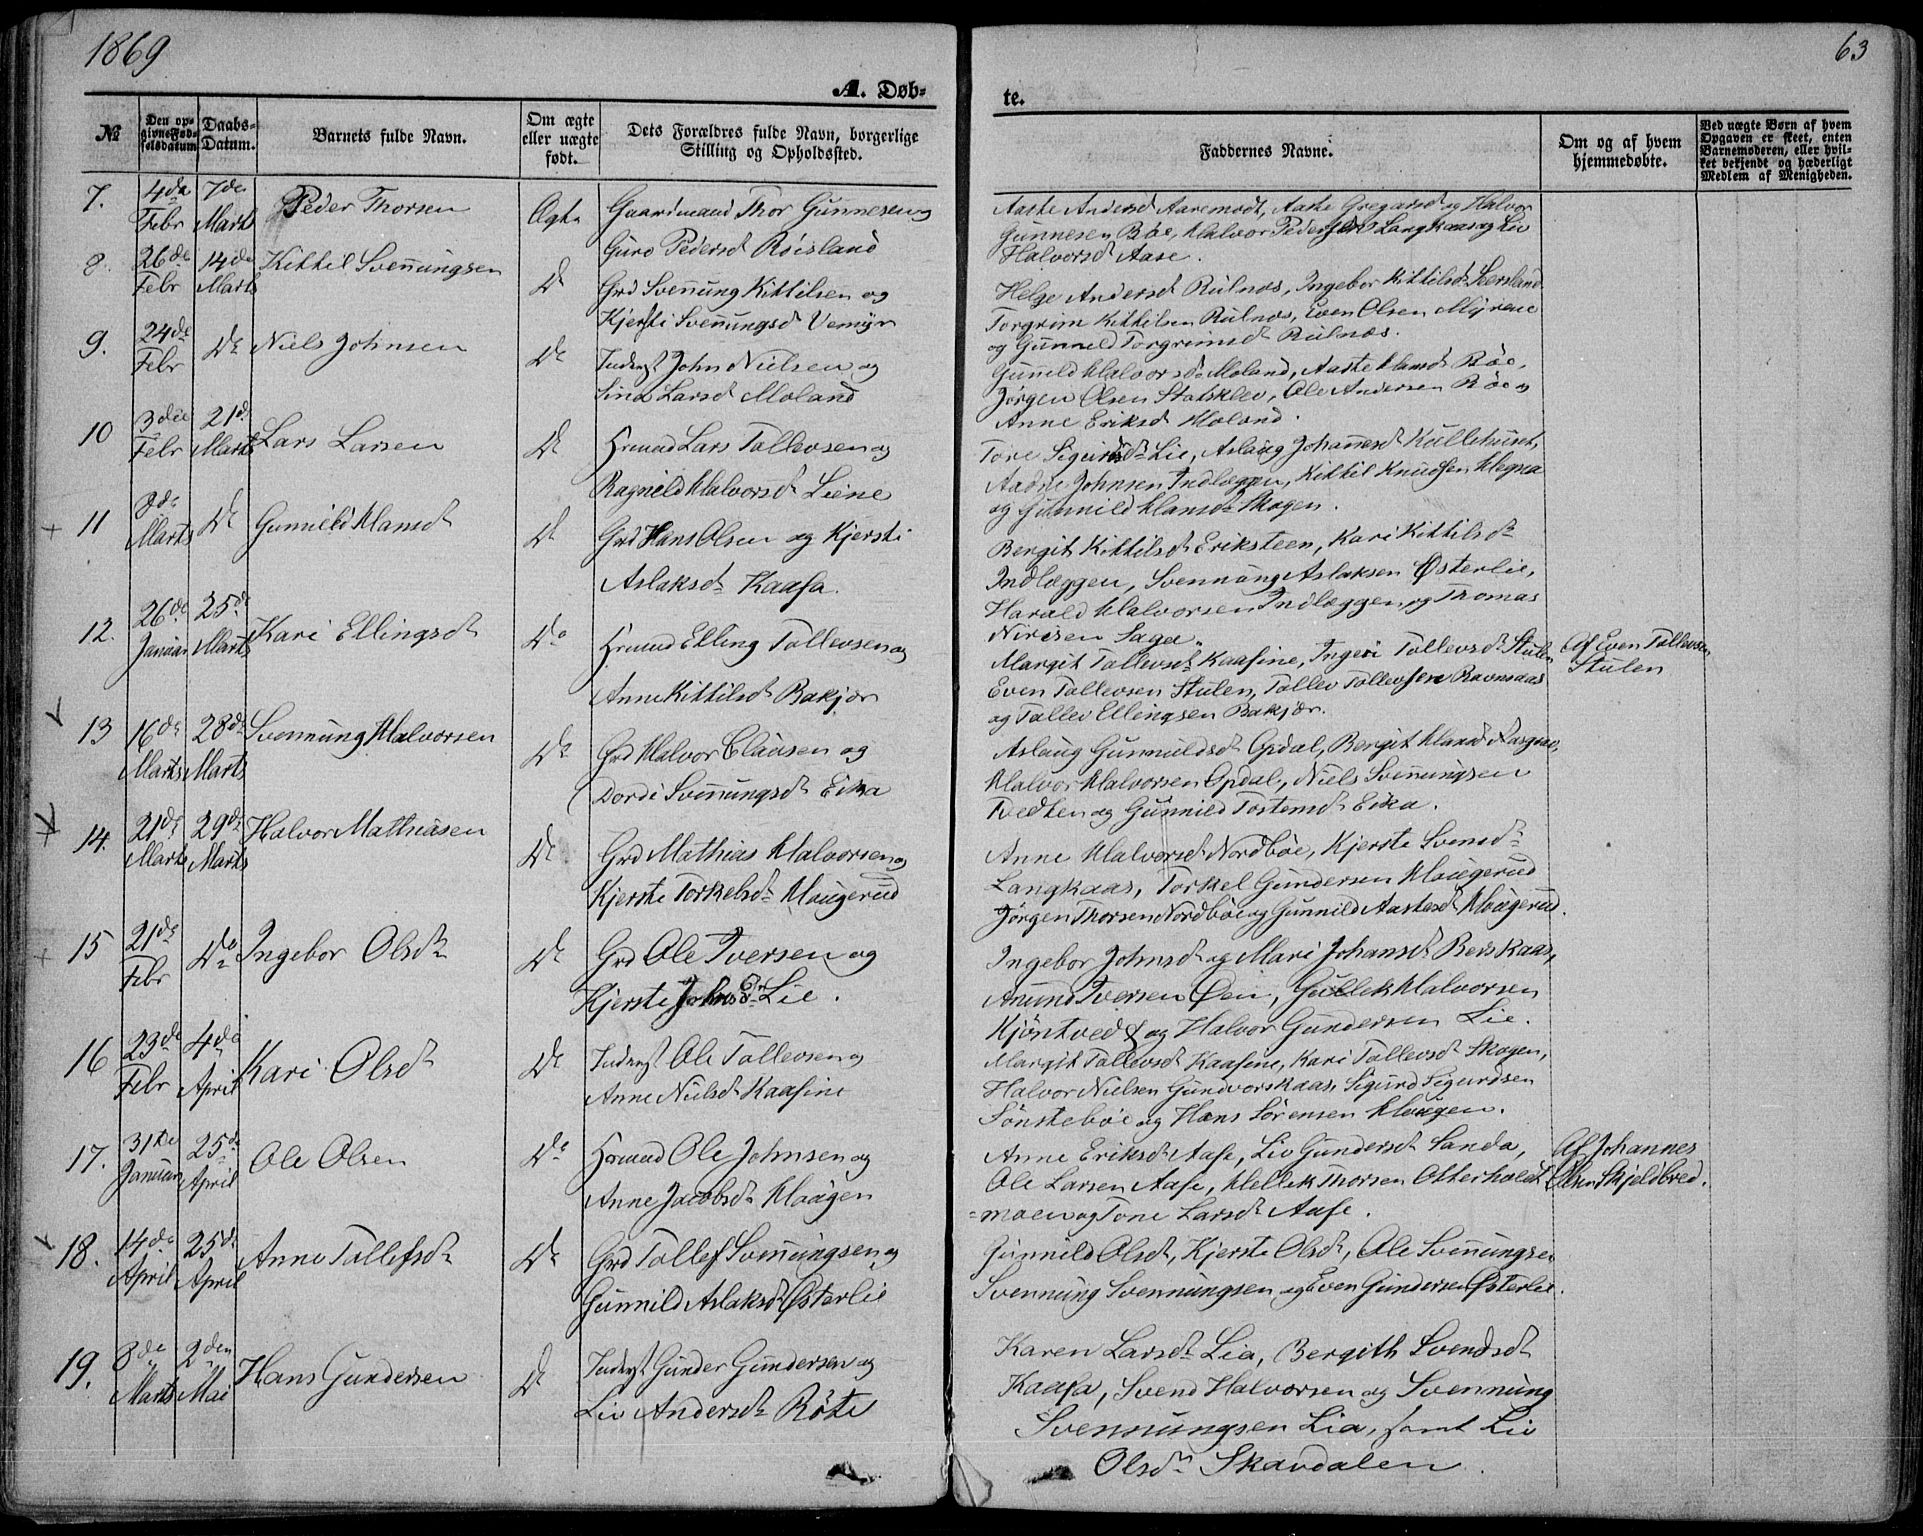 1869
63
A. Døb-
te.
№
Den op-
givne Fød-
selsdatum
Daabs-
Datum.
Barnets fulde Navn.
Om ægte
eller uægte
født.
Dets Forældres fulde Navn, borgerlige
Stilling og Opholdssted.
Faddernes Navne.
Om og af hvem
hjemmedøbte.
Ved uægte Børn af hvem
Opgaven er skeet, enten
Barnemoderen, eller hvil-
ket bekjendt og hæderligt
Medlem af Menigheden.
7.
4de
Febr
7de
Marts
Peder Thorsen
Ægte
Gaardmand Thor Gunnesen og
Guro Pedersd Røisland
Aaste Andersd Aaremodt, Aaste Gregarsd og Halvor
Gunnesen Bøe, Halvor Pedersen Langkaas og Liv
Halvorsd Aase.
8.
26de
Febr
14de
Marts
Kittil Svennungsen
Do
Grd Svennung Kittilsen og
Kjersti Svennungsd Vemyr
Helge Andersd Rulnæs, Ingebor Kittilsd
Torgrim Kittilsen Rulnæs, Even Olsen Myrene
og Gunneld Torgrimsd Rulnæs.
9.
24de
Febr
Do
Niels Johnsen
Do
Inderst John Nielsen og
Sina Larsd Moland
Gunneld Halvorsd Moland, Aaste Hansd Bøe,
Jørgen Olsen Statsklev, Ole Andersen Bøe og
Anne Eriksd Moland.
10
3die
Febr
21de
Marts
Lars Larsen
Do
Hrmnd Lars Tollevsen og
Ragnild Halvorsd Liene
Tone Sigurdsd Lie, Aslaug Johannesd Kullehuset,
Aadne Johnsen Indlæggen, Kittil Knudsen Hegna
og Gunnild Hansd Skogen.
+
11
8de
Marts
Do
Gunnild Hansd
Do
Grd Hans Olsen og Kjersti
Aslaksd Kaasa.
Bergit Kittilsd Eriksteen, Kari Kittilsd
Indlæggen, Svennung Aslaksen Østerlie,
Harald Halvorsen Indlæggen og Thomas
Nirisen Saga.
12.
26de
Januar
25de
Marts
Kari Ellingsd
Do
Hrmnd Elling Tollevsen og
Anne Kittilsd Bakjær
Margit Tollevsd Kaasine, Ingeri Tollevsd Stulen
Even Tollevsen Stulen, Tollev Tollevsen Ravnaas
og Tollev Ellingsen Bakjær.
Af Even Tollevsen
Stulen
13
16de
Marts
28de
Marts
Svennung Halvorsen
Do
Grd Halvor Clausen og
Dordi Svennungsd Eika
Aslaug Gunnuldsd Opdal, Bergit Hansd
Halvor Halvorsen Opdal, Niels Svennungsen
Tvedten og Gunnild Tostensd Eika.
14.
21de
Marts
29de
Marts
Halvor Mathiasen
Do
Grd Mathias Halvorsen og
Kjerste Torkelsd Haugerud
Anne Halvorsd Nordbøe, Kjerste Svensd
Langkaas, Torkel Gundersen Haugerud
Jørgen Thorsen Nordbøe og Gunnild Aastesd Haugerud.
+
15
21de
Febr
Do
Ingebor Olsd
Do
Grd Ole Iversen og
Kjerste Johnsd Lie.
Ingebor Johnsd og Mari Johansd Berskaas,
Anund Iversen Øen, Gullek Halvorsen
Kjøntvedt og Halvor Gundersen Lie.
16
23de
Febr
4de
April
Kari Olsd
Do
Inderst Ole Tollevsen og
Anne Nielsd Kaasine
Margit Tollevsd Kaasine, Kari Tollevsd Skogen,
Halvor Nielsen Gundvorskaas, Sigurd Sigurdsen
Sønstebøe og Hans Sørensen Haugen.
17.
31te
Januar
25de
April
Ole Olsen
Do
Hrmnd Ole Johnsen og
Anne Jacobsd Haugen
Anne Eriksd Aase, Liv Gundersd Sanda,
Ole Larsen Aase, Hellek Thorsen Otterholdt-
=moen og Tone Larsd Aase.
Af Johannes
Olsen Skjeldbred.
18.
14de
April
25de
April
Anne Tollefsd
Do
Grd Tollef Svennungsen og
Gunnild Aslaksd Østerlie
Gunnild Olsd, Kjerste Olsd, Ole Svennungsen
Svennung Svennungsen og Even Gundersen Østerlie.
19.
8de
Marts
2den
Mai
Hans Gundersen
Do
Inderst Gunder Gundersen og
Liv Andersd Røte
Karen Larsd Lia, Bergith Svendsd
Kaasa, Svend Halvorsen og Svennung
Svennungsen Lia, samt Liv
Olsd Skavdalen.